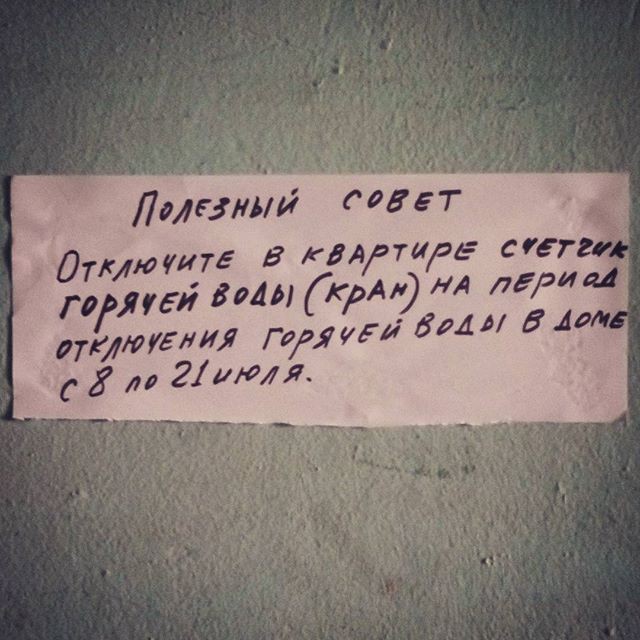 Полезный совет
Отключите в квартире счетчик
горячей воды (кран) на период
отключения горячей воды в доме
с 8 по 21 июля.